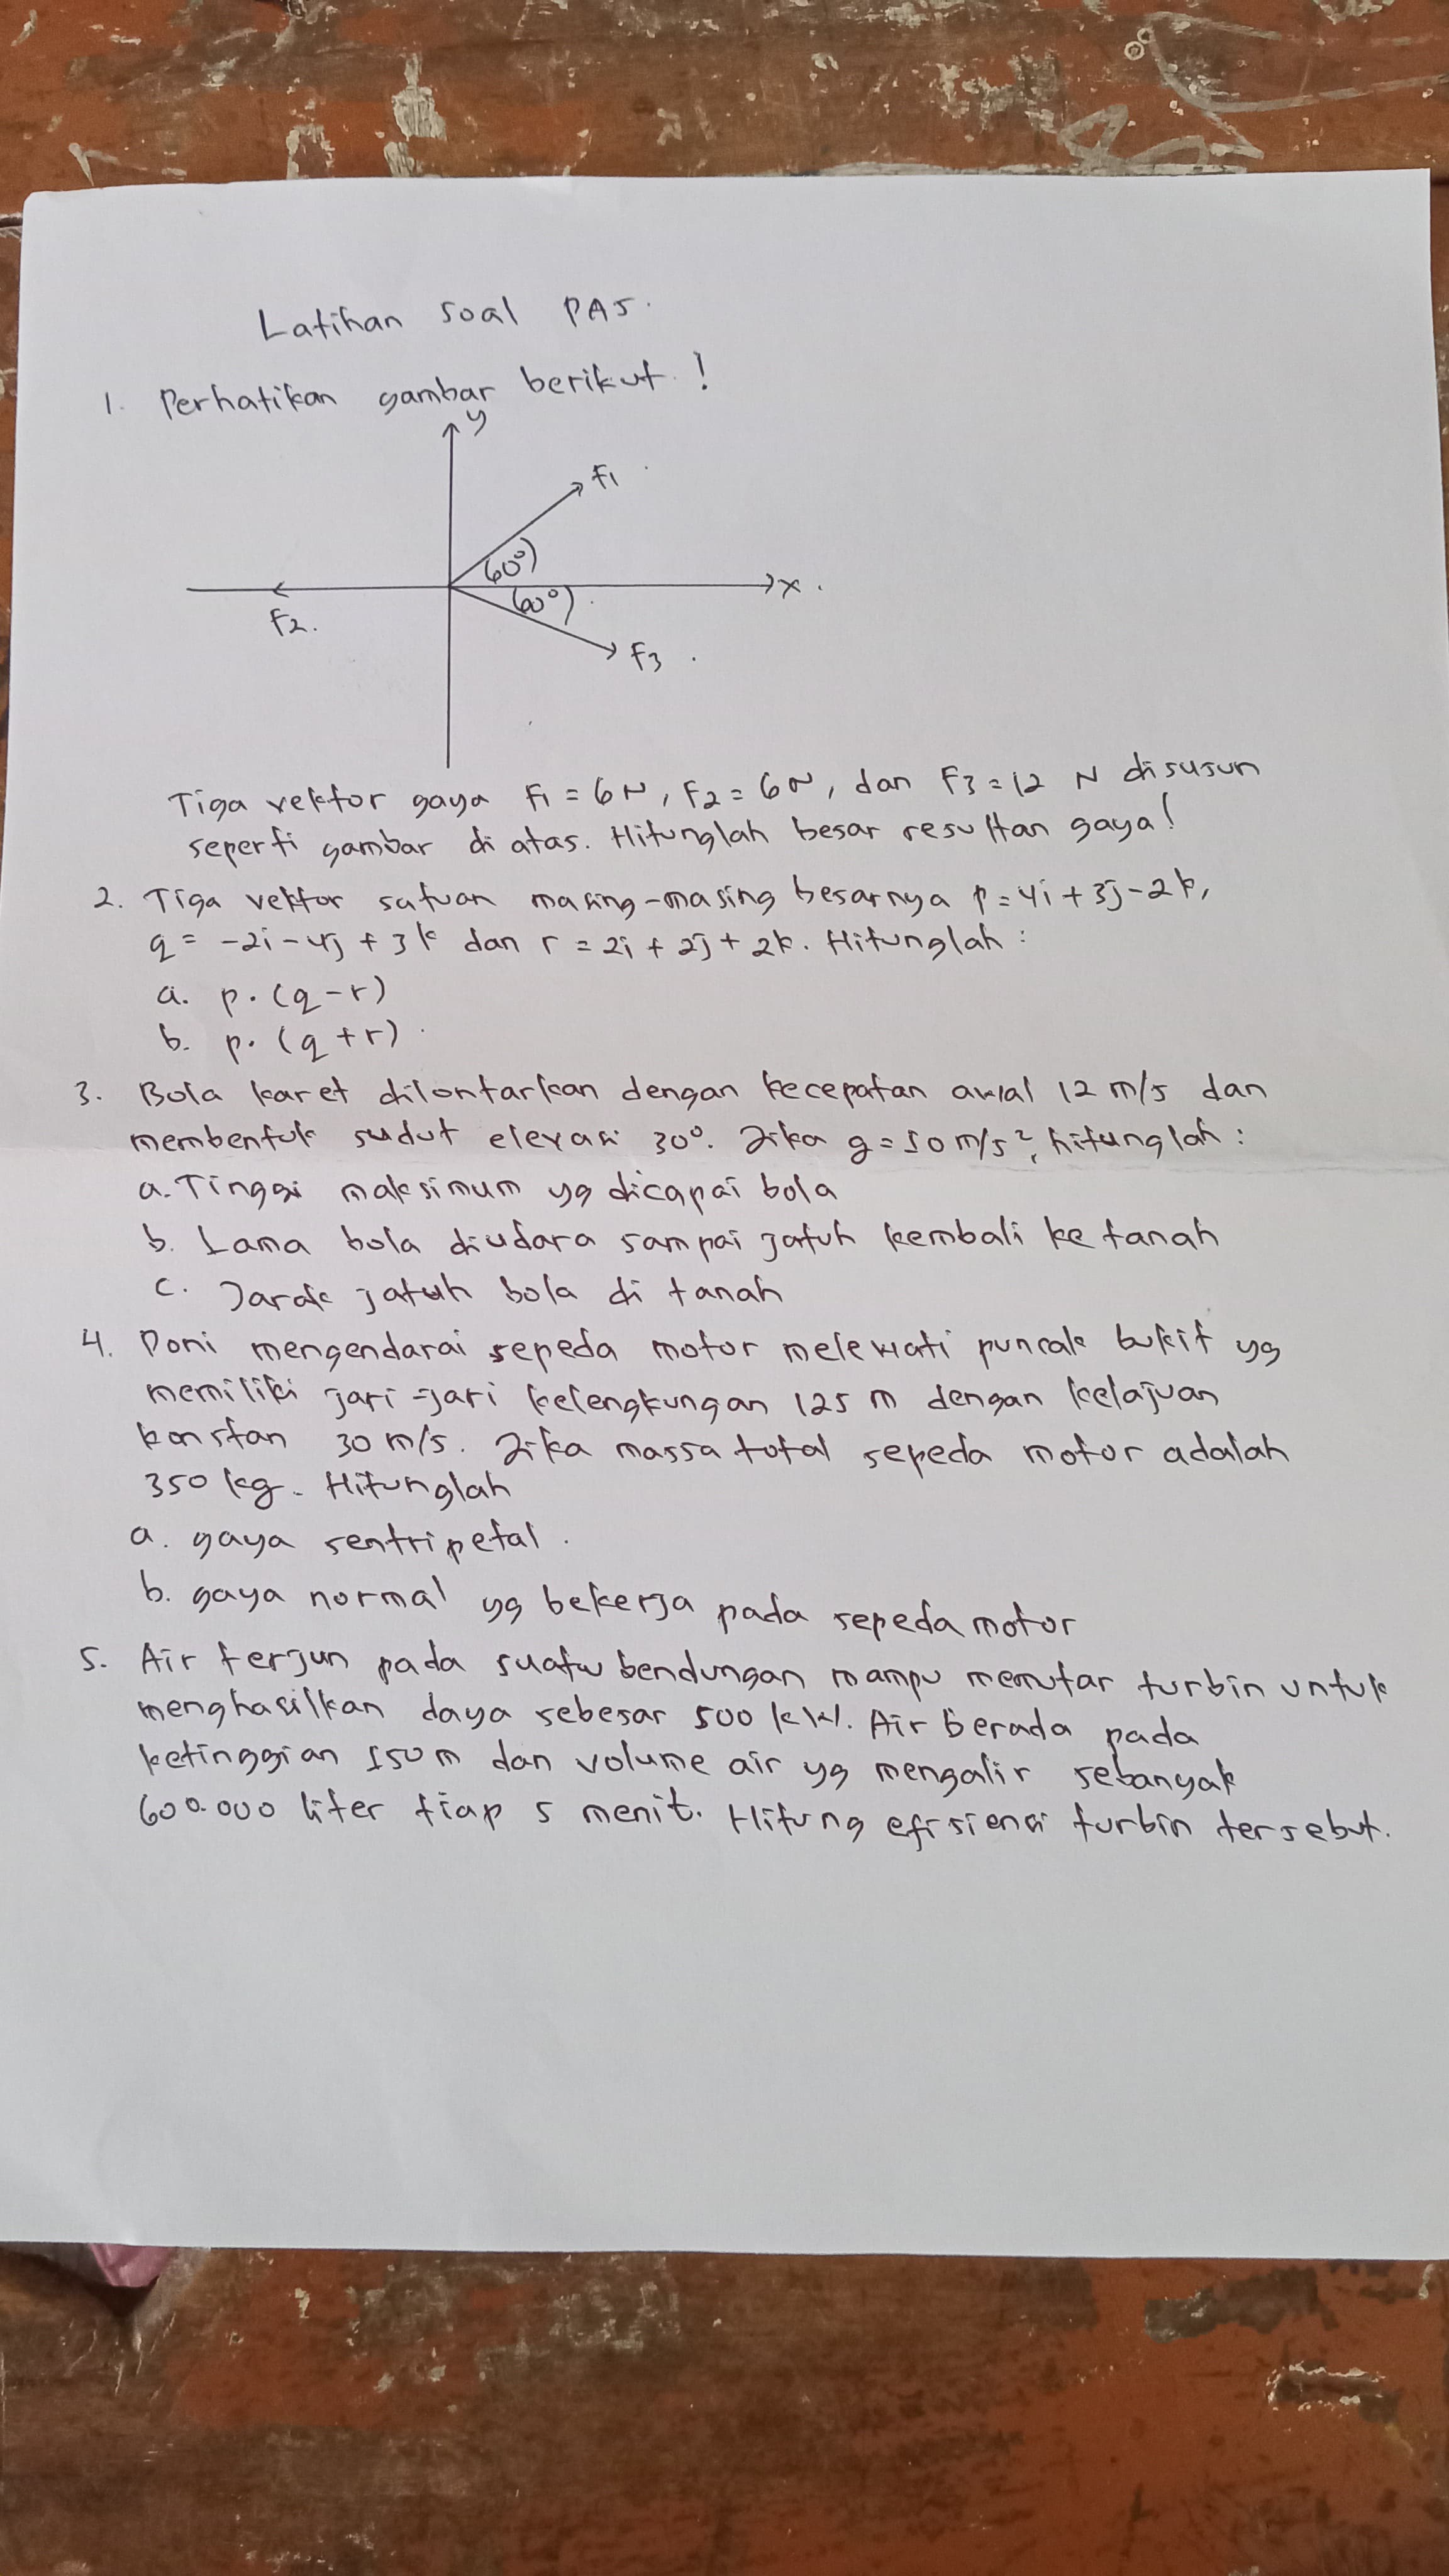 Latihan soal PAS.
1. Perhatikan gambar berikut !
y
F1
60°
x
60°
F2.
F3
Tiga vektor gaya F1 = 6N, F2 = 6N, dan F3 = 12 N disusun
seperti gambar di atas. Hitunglah besar resultan gaya!
2. Tiga vektor satuan masing-masing besarnya p = 4i + 3j - 2k,
q = -2i - 4j + 3k dan r = 2i + 2j + 2k. Hitunglah :
a. p. (q - r)
b. p. (q + r)
3. Bola karet dilontarkan dengan kecepatan awal 12 m/s dan
membentuk sudut elevasi 30°. Jika g = 10 m/s², hitunglah :
a. Tinggi maksimum yg dicapai bola
b. Lama bola diudara sampai jatuh kembali ke tanah
c. Jarak jatuh bola di tanah
4. Doni mengendarai sepeda motor melewati puncak bukit yg
memiliki jari-jari kelengkungan 125 m dengan kelajuan
konstan 30 m/s. Jika massa total sepeda motor adalah
350 kg. Hitunglah
a. gaya sentripetal.
b. gaya normal yg bekerja pada sepeda motor
5. Air terjun pada suatu bendungan mampu memutar turbin untuk
menghasilkan daya sebesar 500 kW. Air berada pada
ketinggian 150 m dan volume air yg mengalir sebanyak
600.000 liter tiap 5 menit. Hitung efisiensi turbin tersebut.